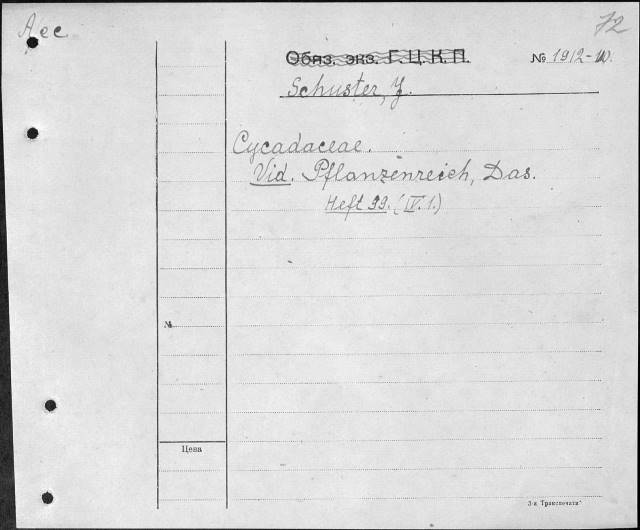 Лес
72
Обяз. экз. Г.Ц.К.П.
№ 1912-ю.
Schuster, J.
Cycadaceae.
Vid. Pflanzenreich, Das.
Heft 99. (IV. 1.)
№
Цена
3-я Транспечати